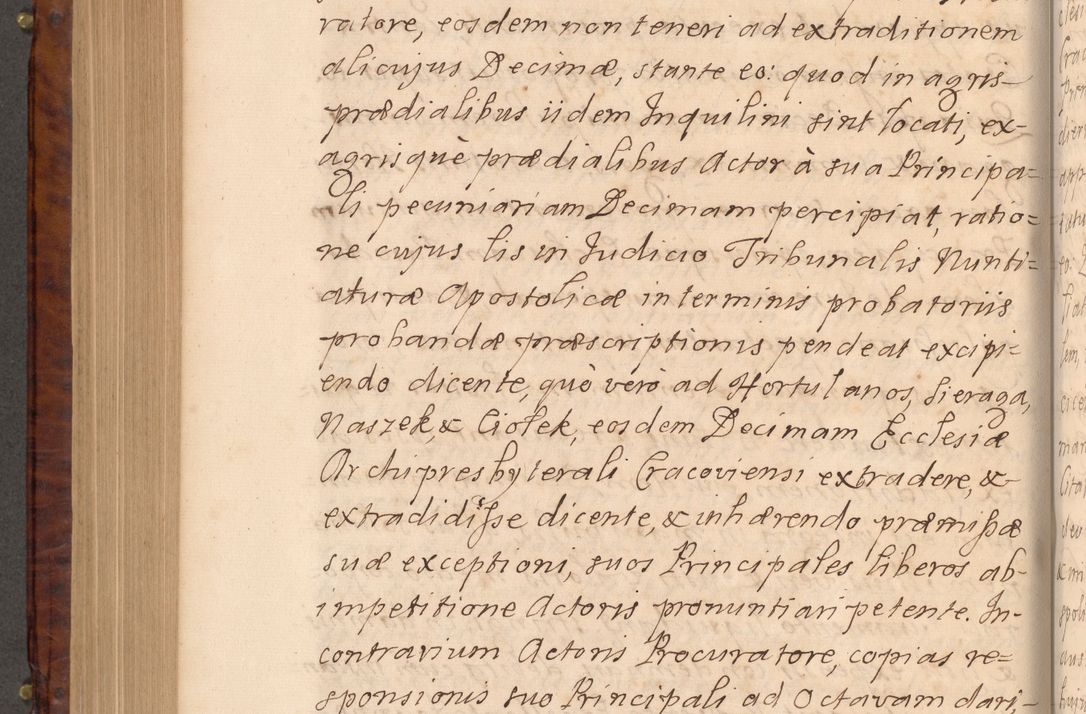 ratore, eosdem non teneri ad extraditionem
alicujus Decimæ, stante eo: quod in agris
prædialibus iidem Inquilini sint locati, ex-
agrisquè prædialibus Actor à sua Principa=
li pecuniariam Decimam percipiat, ratio=
ne cujus lis in Judicio Tribunalis Nunti=
aturæ Apostolicæ in terminis probatoriis
probandæ præscriptionis pendeat excipi=
endo dicente, quò verò ad Hortulanos, Sieraga,
Naszek, & Ciołek, eosdem Decimam Ecclesiæ
Archipresbyterali Cracoviensi extradere, &
extradidisse dicente, & inhærendo præmissæ
suæ exceptioni, suos Principales liberos ab-
impetitione Actoris pronuntiari petente. In-
contrarium Actoris Procuratore, copias re=
sponsionis suo Principali ad Octavam dari